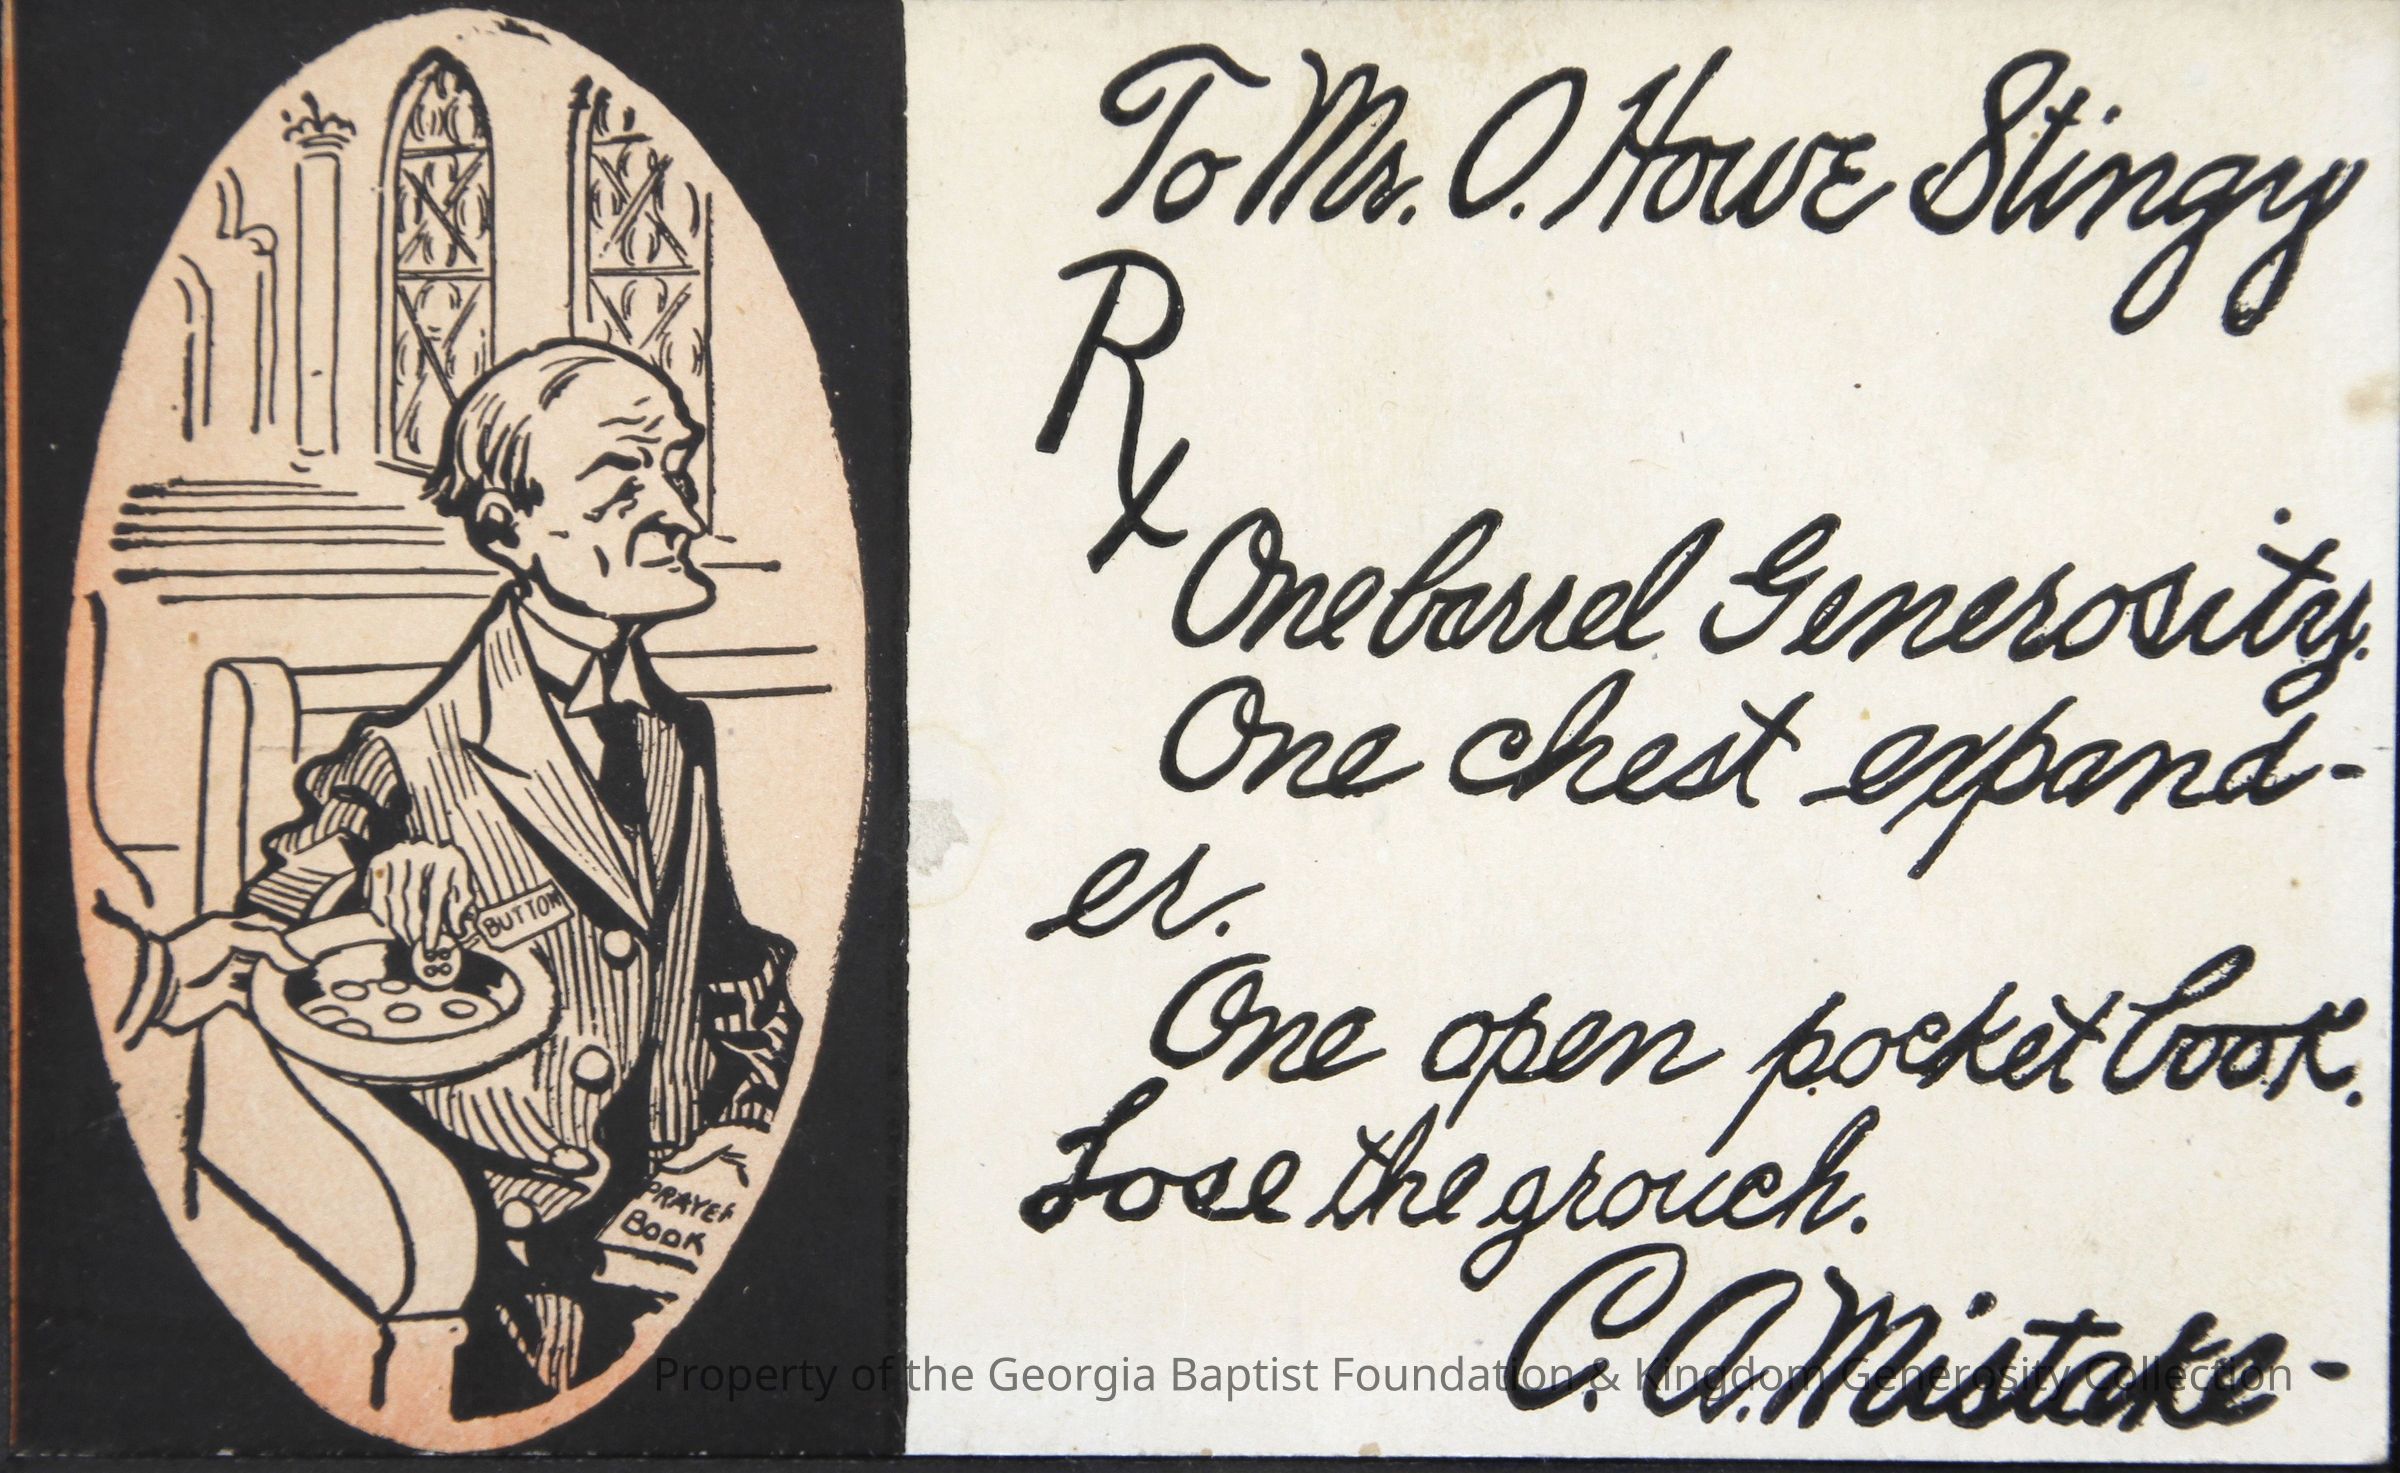 To Mr. O. Howe Stingy
Rx
One barrel Generosity.
One chest expand-
er.
One open pocket book.
Lose the grouch.
C. A. Mistake-
BUTTON
PRAYER
BOOK
Property of the Georgia Baptist Foundation & Kingdom Generosity Collection